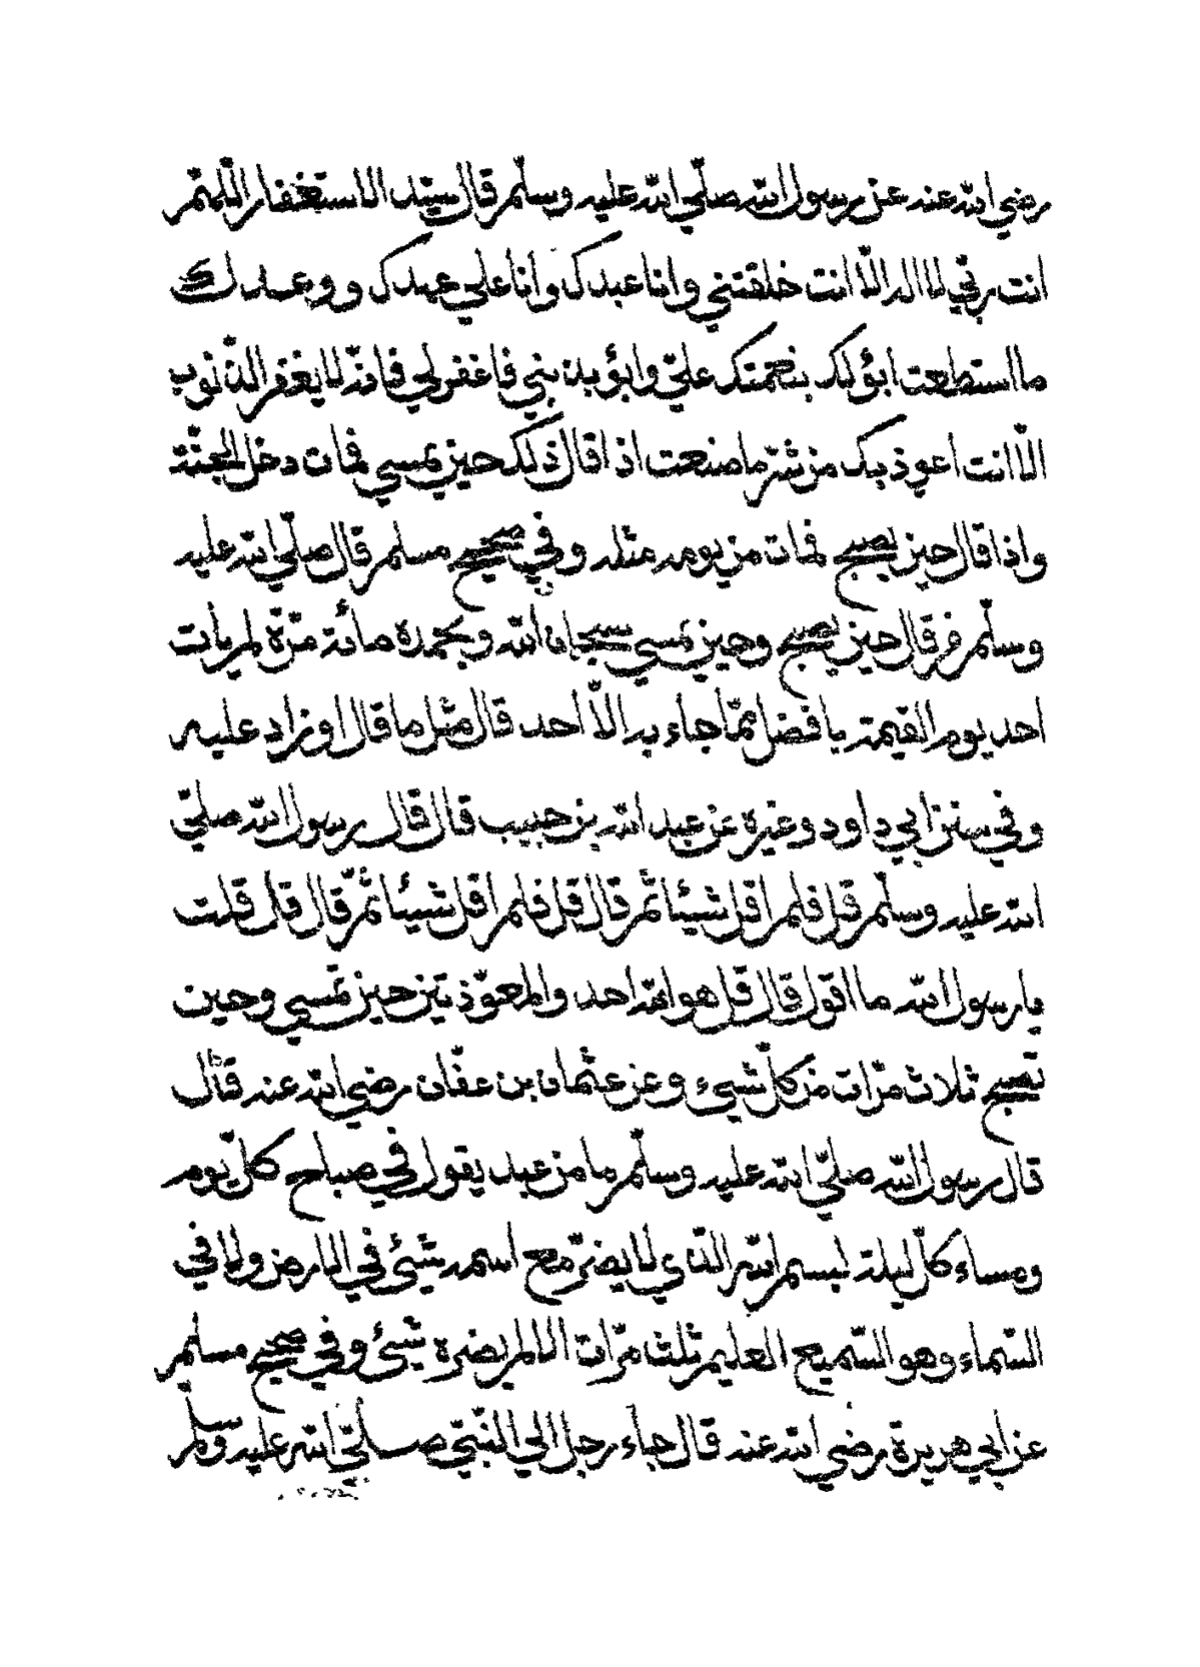 رضي الله عنه عن رسول الله صلّي الله عليه وسلّم قال سيّد الاستغفار اللهمّ
انت ربّي لا اله الّا انت خلقتني وانا عبدك وانا علي عهدك ووعدك
ما استطعت ابؤلك بنعمتك عليّ وابؤ بذنبي فاغفرلي فانّه لا يغفر الذّنوب
الّا انت اعوذ بك من شرّ ما صنعت اذا قال ذلك حين يمسي فمات دخل الجنّة
واذا قال حين يصبح فمات من يومه مثله وفي صحيح مسلم قال صلّي الله عليه
وسلّم من قال حين يصبح وحين يمسي سبحان الله وبحمده مائة مرّة لم يأت
احد يوم القيمة بافضل ممّا جاء به الّا احد قال مثل ما قال او زاد عليه
وفي سنن ابي داود وغيره عن عبد الله بن حبيب قال قال رسول الله صلّي
الله عليه وسلّم قل فلم اقل شيئا ثمّ قال قل فلم اقل شيئا ثمّ قال قل قلت
يا رسول الله ما اقول قال قل هو الله احد والمعوّذتين حين تمسي وحين
تصبح ثلاث مرّات من كلّ شيء وعن عثمان بن عفّان رضي الله عنه قال
قال رسول الله صلّي الله عليه وسلّم ما من عبد يقول في صباح كلّ يوم
ومساء كلّ ليلة بسم الله الذي لا يضرّ مع اسمه شئ في الارض ولا في
السّماء وهو السّميع العليم ثلث مرّات الا لم يضره شئ وفي صحيح مسلم
عن ابي هريرة رضي الله عنه قال جاء رجل الي النّبيّ صلّي الله عليه وسلم